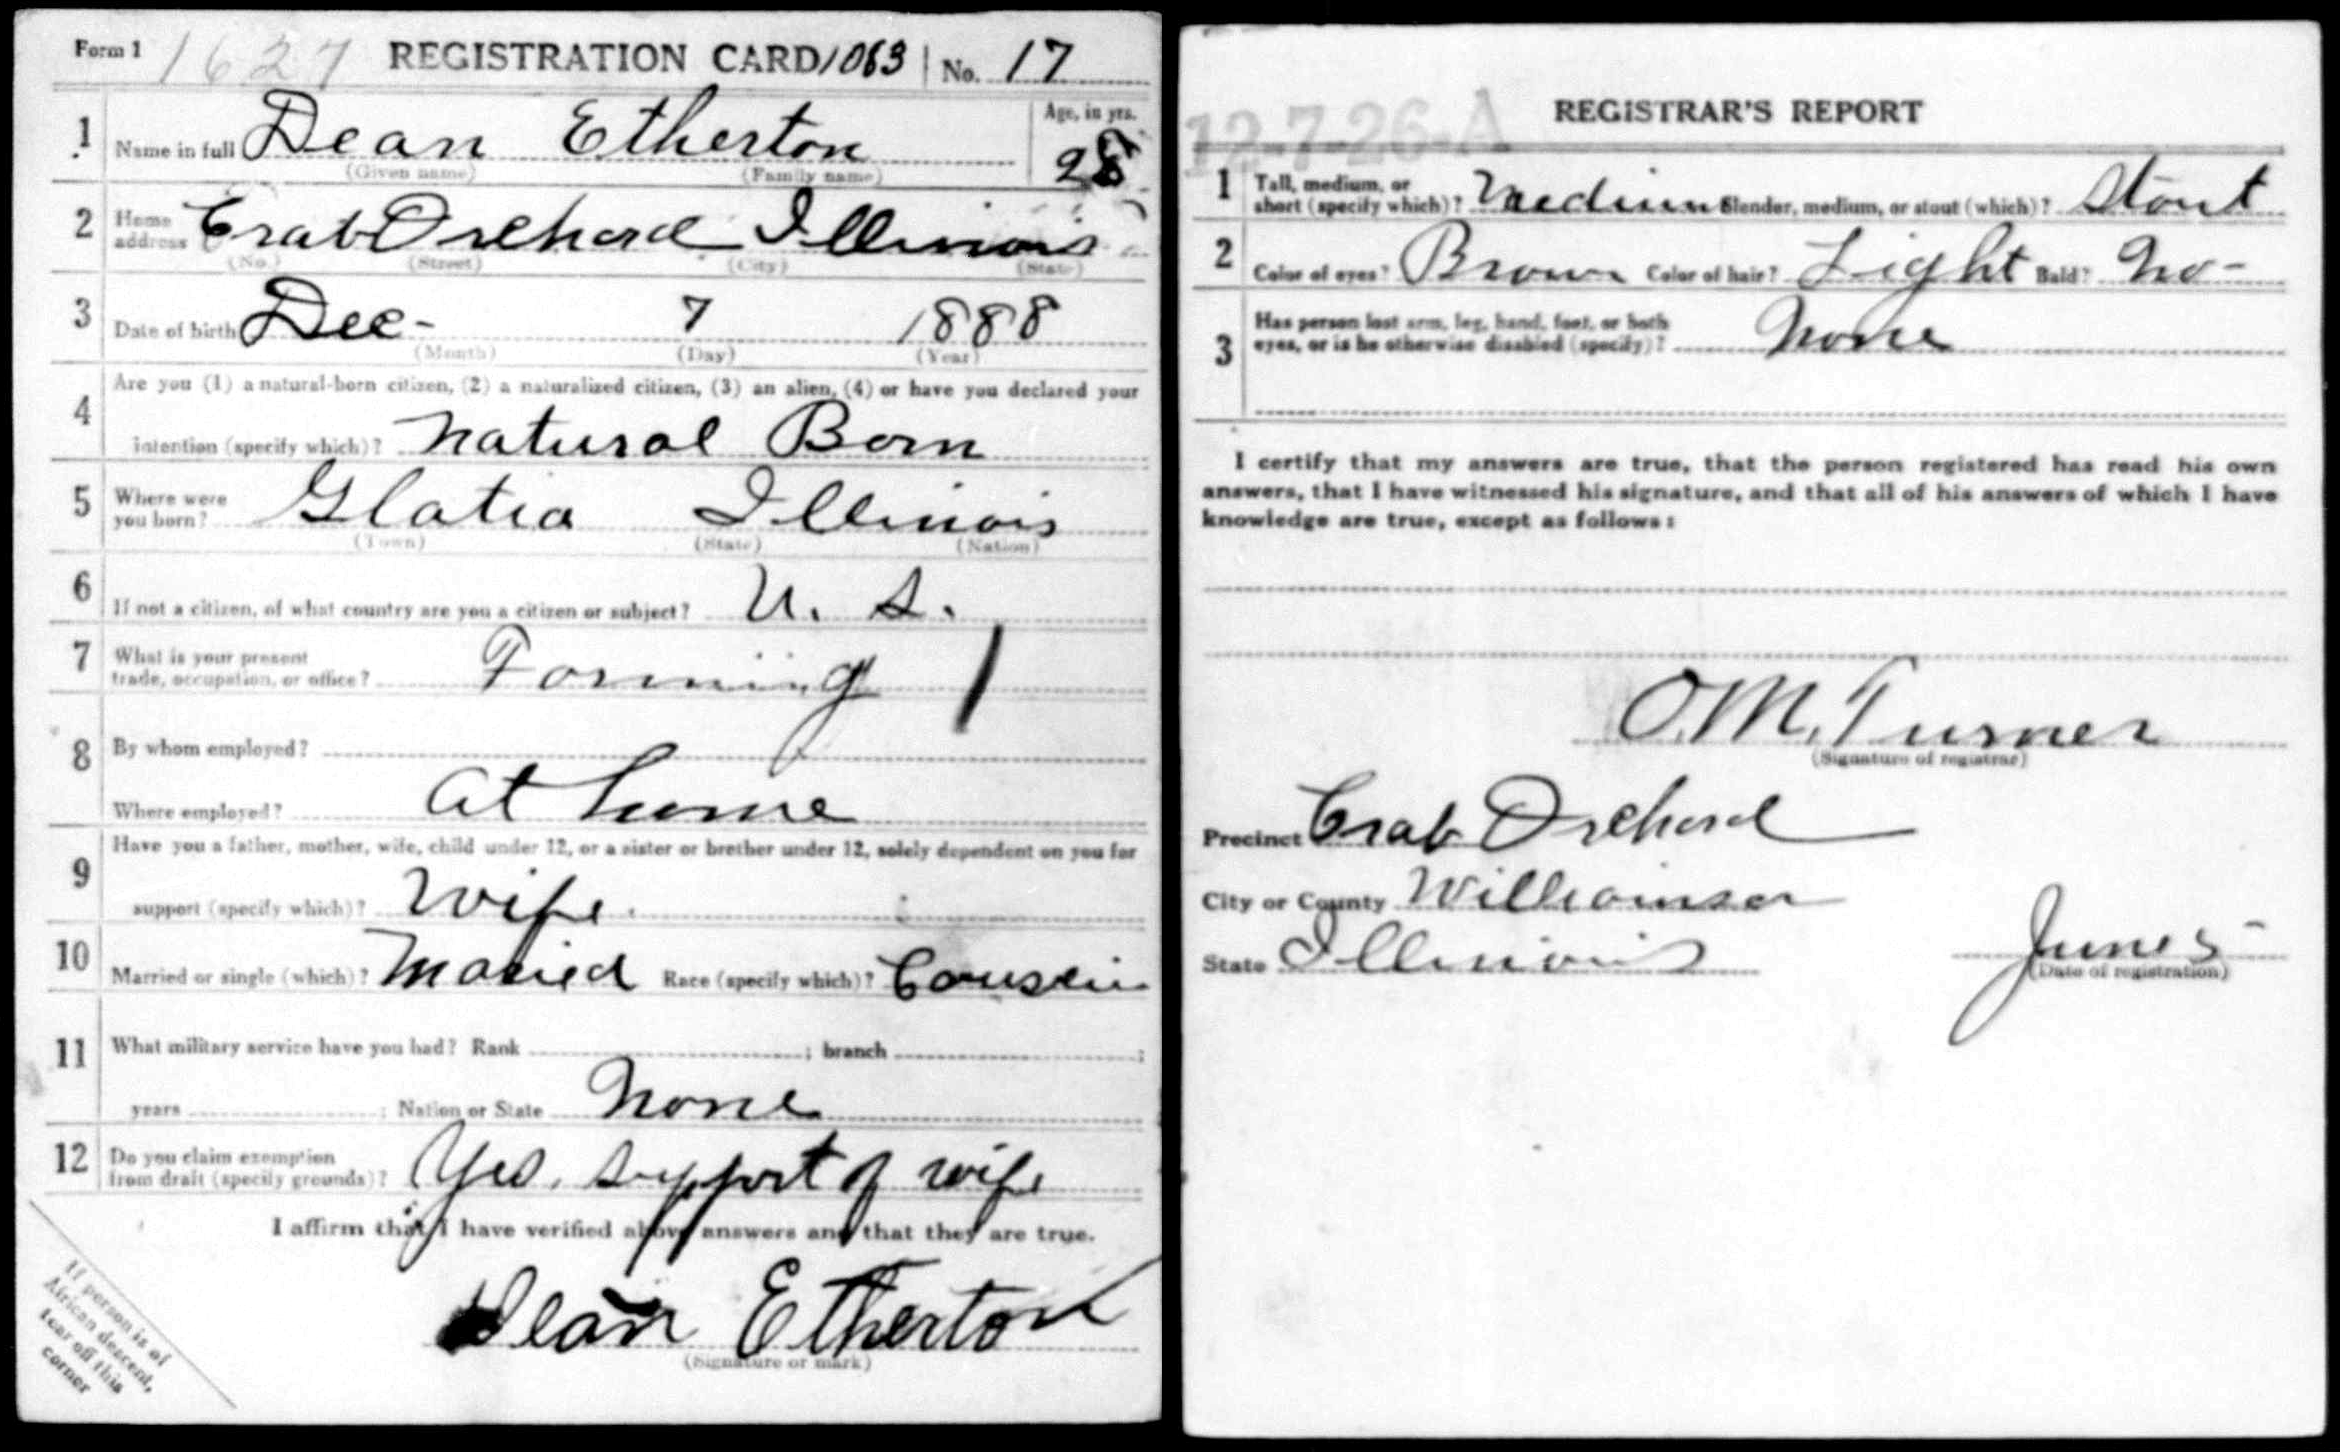 Form 1 1627 REGISTRATION CARD 1063 No. 17
1 Name in full Dean Etherton Age, in yrs.
(Given name) (Family name) 28
2 Home address Crab Orchard Illinois
(No.) (Street) (City) (State)
3 Date of birth Dec - 7 1888
(Month) (Day) (Year)
4 Are you (1) a natural-born citizen, (2) a naturalized citizen, (3) an alien, (4) or have you declared your
intention (specify which)? Natural Born
5 Where were you born? Glatia Illinois
(Town) (State) (Nation)
6 If not a citizen, of what country are you a citizen or subject? U. S.
7 What is your present
trade, occupation, or office? Farming
8 By whom employed?
Where employed? at home
9 Have you a father, mother, wife, child under 12, or a sister or brother under 12, solely dependent on you for
support (specify which)? Wife
10 Married or single (which)? Maried Race (specify which)?
11 What military service have you had? Rank ; branch ;
years ; Nation or State None
12 Do you claim exemption
from draft (specify grounds)? Yes. Support of wife
I affirm that I have verified above answers and that they are true.
Dean Etherton
(Signature or mark)
If person is of
African descent,
tear off this
corner
REGISTRAR'S REPORT
12-7-26-A
1 Tall, medium, or
short (specify which)? Medium Slender, medium, or stout (which)? Stout
2 Color of eyes? Brown Color of hair? Light Bald? No -
3 Has person lost arm, leg, hand, foot, or both
eyes, or is he otherwise disabled (specify)? None
I certify that my answers are true, that the person registered has read his own
answers, that I have witnessed his signature, and that all of his answers of which I have
knowledge are true, except as follows:
O.M. Turner
(Signature of registrar)
Precinct Crab Orchard
City or County Williamson
State Illinois June 5
(Date of registration)